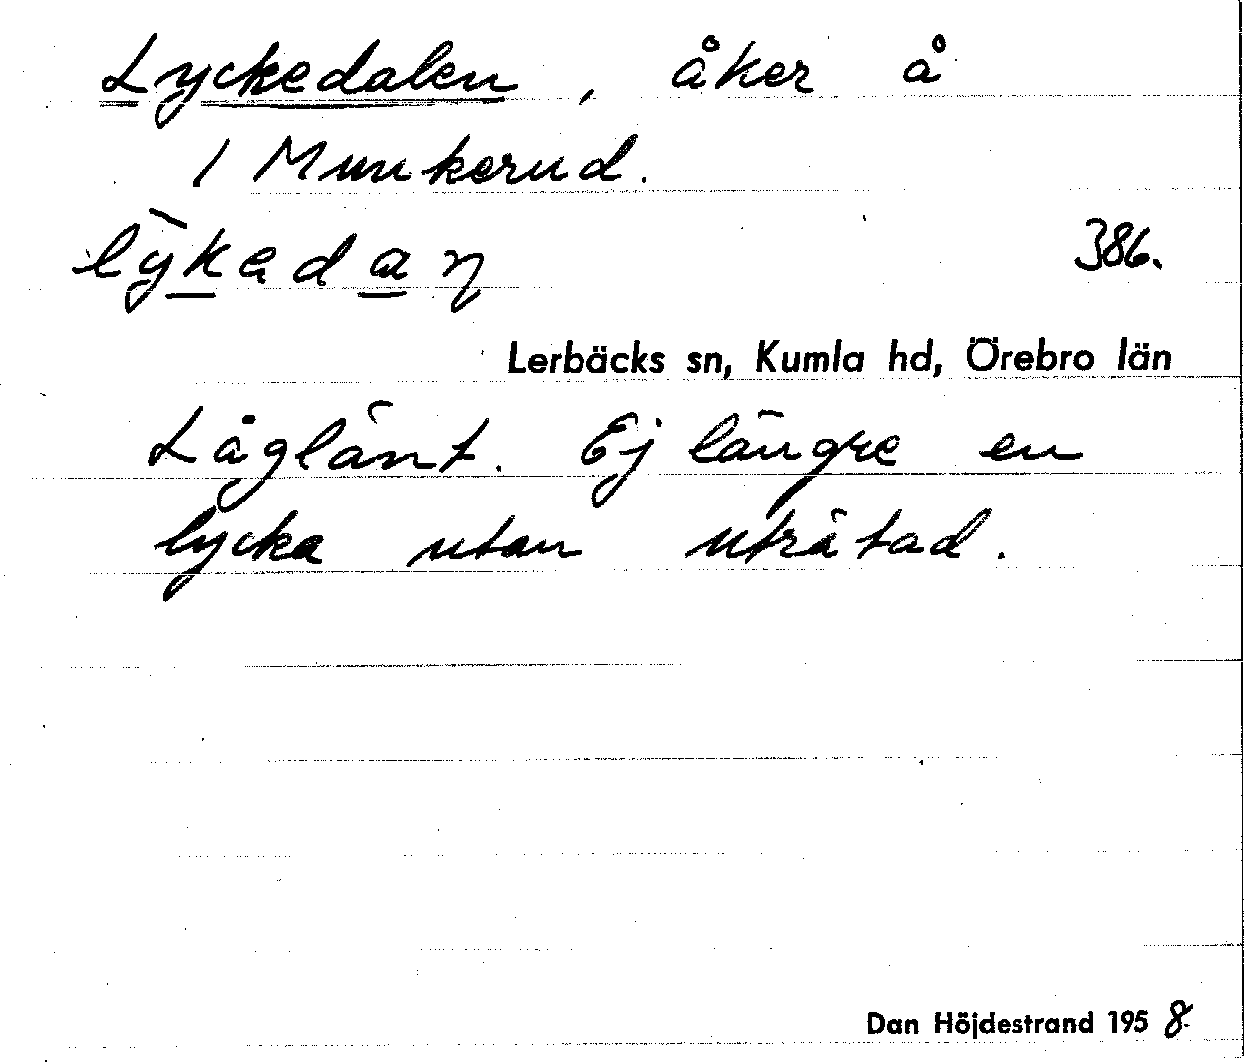 Lyckedalen, åker å
1 Munkerud.
lỳkedaɳ
386.
Lerbäcks sn, Kumla hd, Örebro län
Låglänt. Ej längre en
lycka utan uträtad.
Dan Höjdestrand 1958